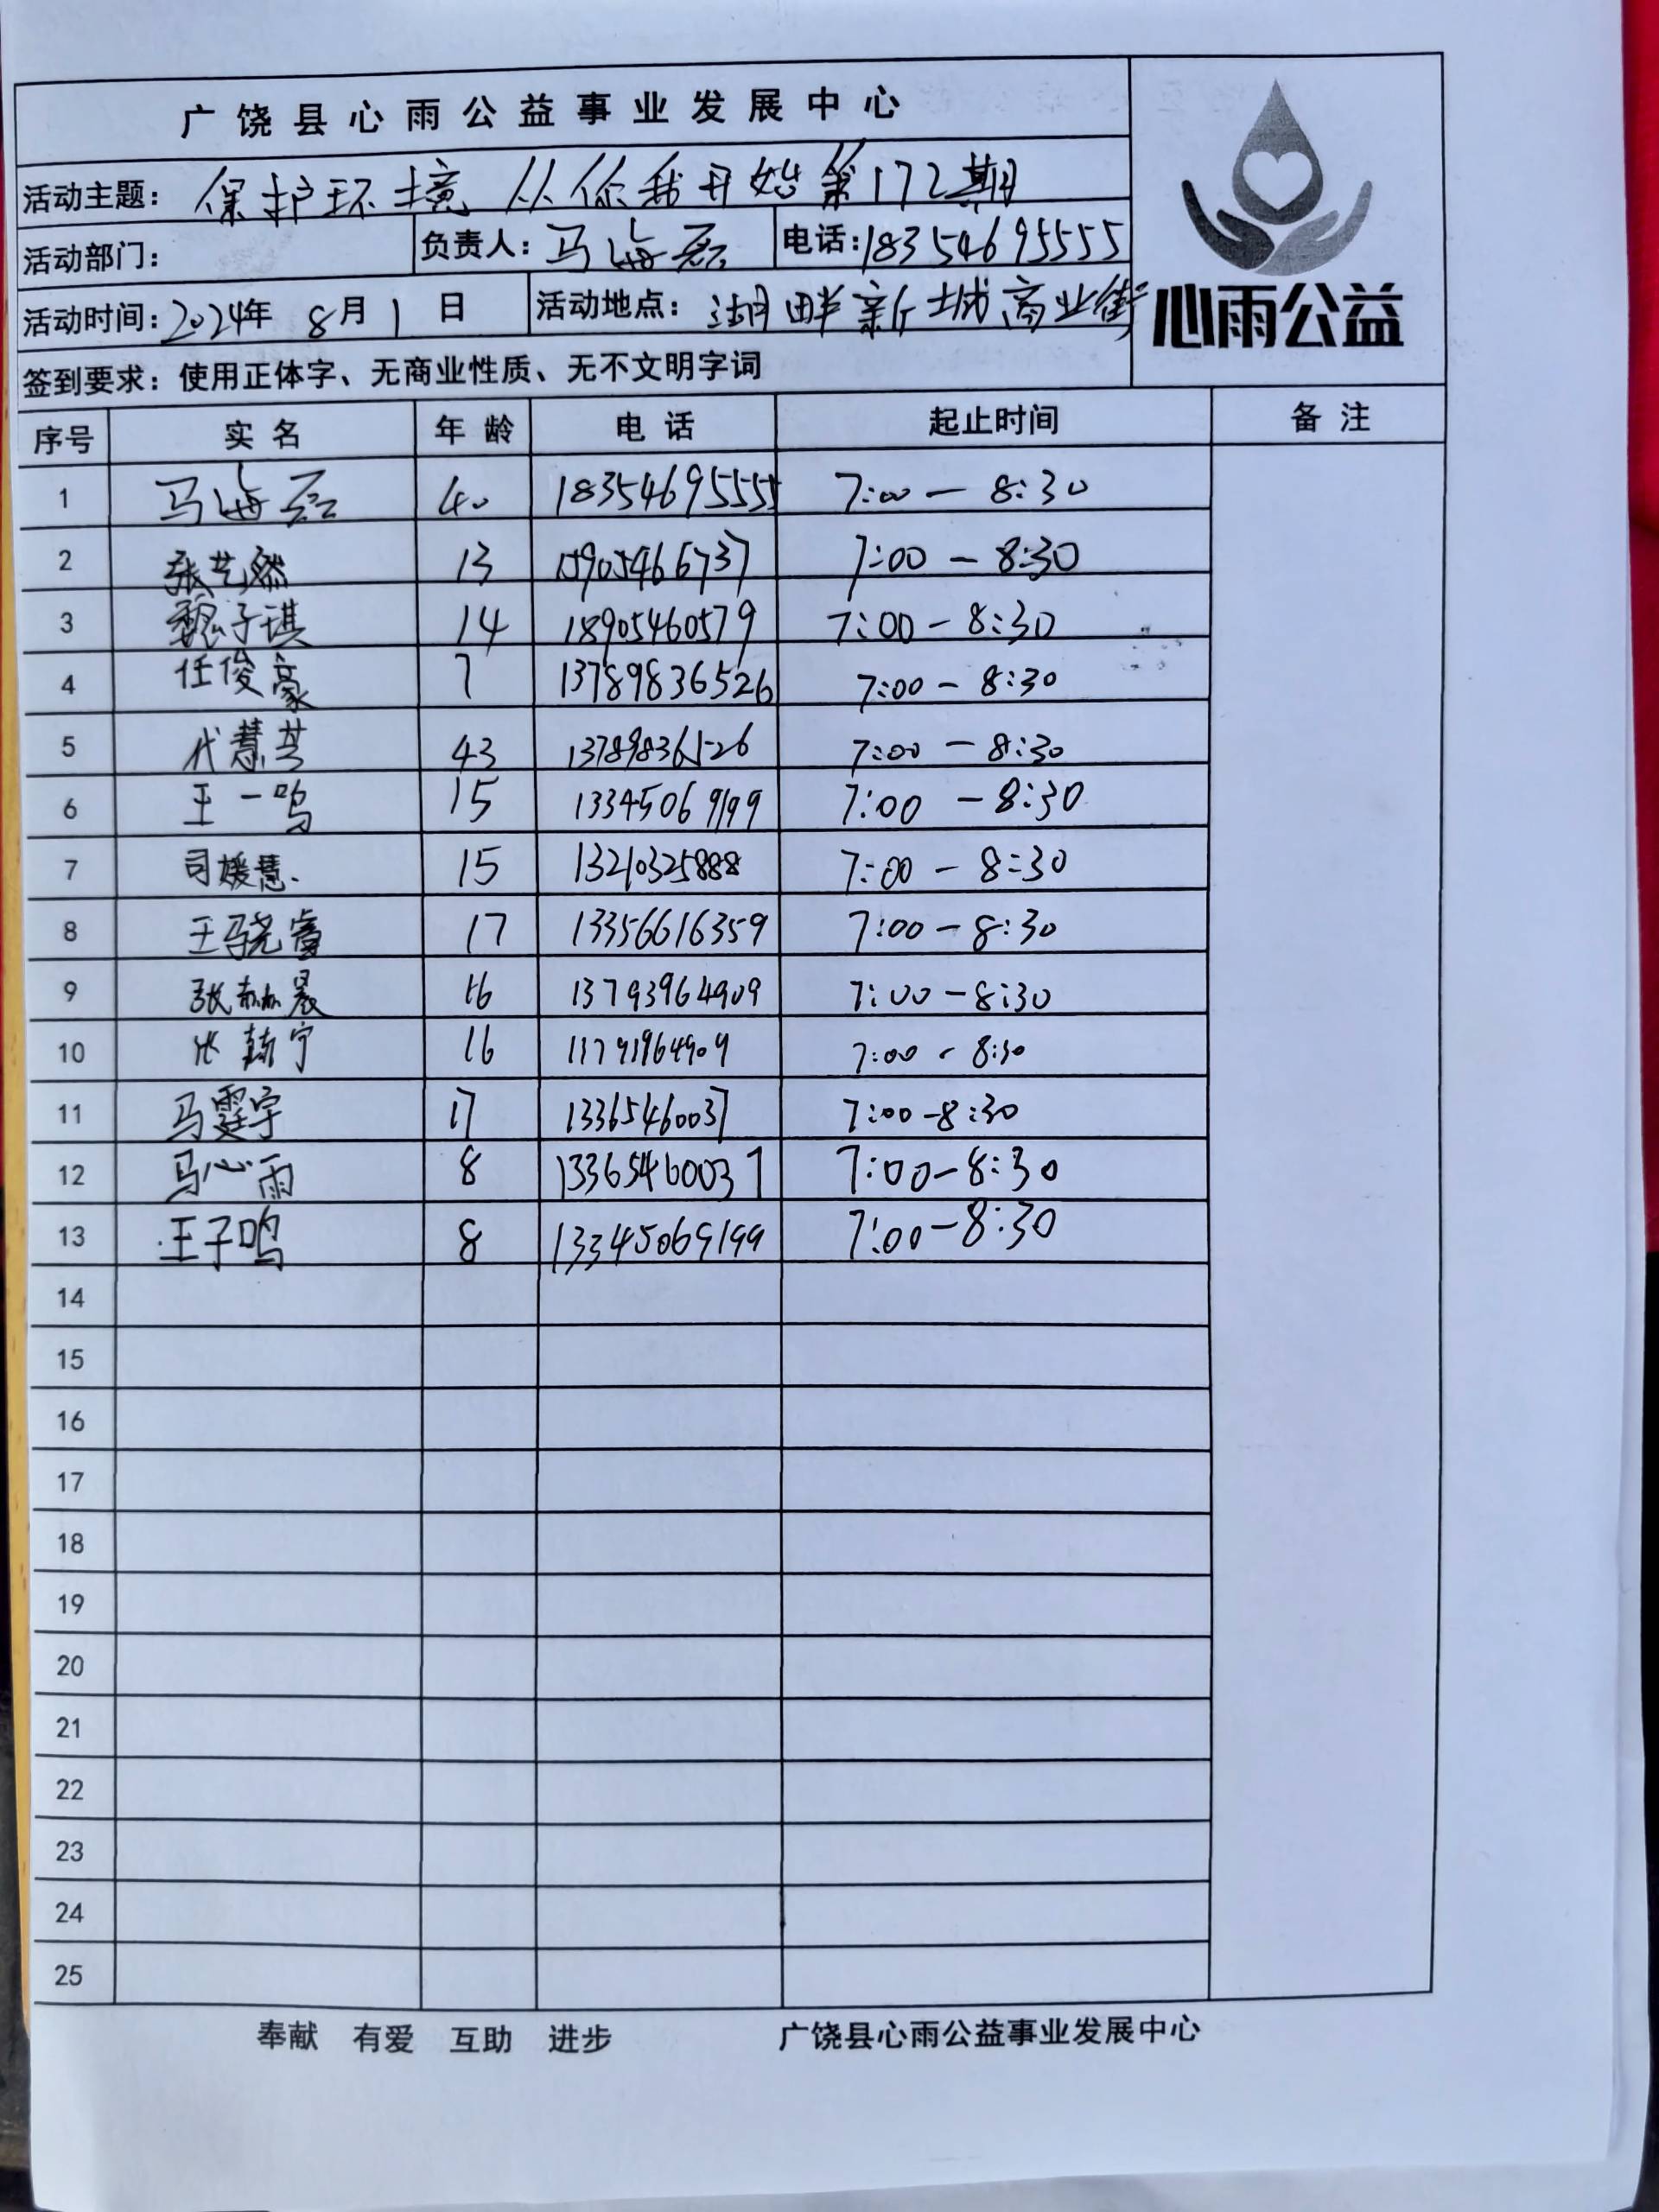 广饶县心雨公益事业发展中心
活动主题：保护环境 从你我开始第172期
活动部门： 负责人：马海磊 电话：18354695555
活动时间：2024年 8月1日 活动地点：湖畔新城商业街
心雨公益
签到要求：使用正体字、无商业性质、无不文明字词
序号 实名 年龄 电话 起止时间 备注
1 马海磊 40 18354695555 7:00—8:30
2 张艺然 13 15905466737 7:00—8:30
3 魏子琪 14 18905460579 7:00-8:30
4 任俊豪 7 13789836526 7:00-8:30
5 代慧芸 43 13789836526 7:00—8:30
6 王一鸣 15 13345069199 7:00—8:30
7 司媛慧. 15 13210325888 7:00-8:30
8 王骁睿 17 13356616359 7:00-8:30
9 张赫晨 16 13793964909 7:00-8:30
10 宁 16 7:00-8:30
11 马霆宇 17 13365460037 7:00-8:30
12 马心雨 8 13365460037 7:00-8:30
13 王子鸣 8 13345069199 7:00-8:30
14
15
16
17
18
19
20
21
22
23
24
25
奉献 有爱 互助 进步 广饶县心雨公益事业发展中心